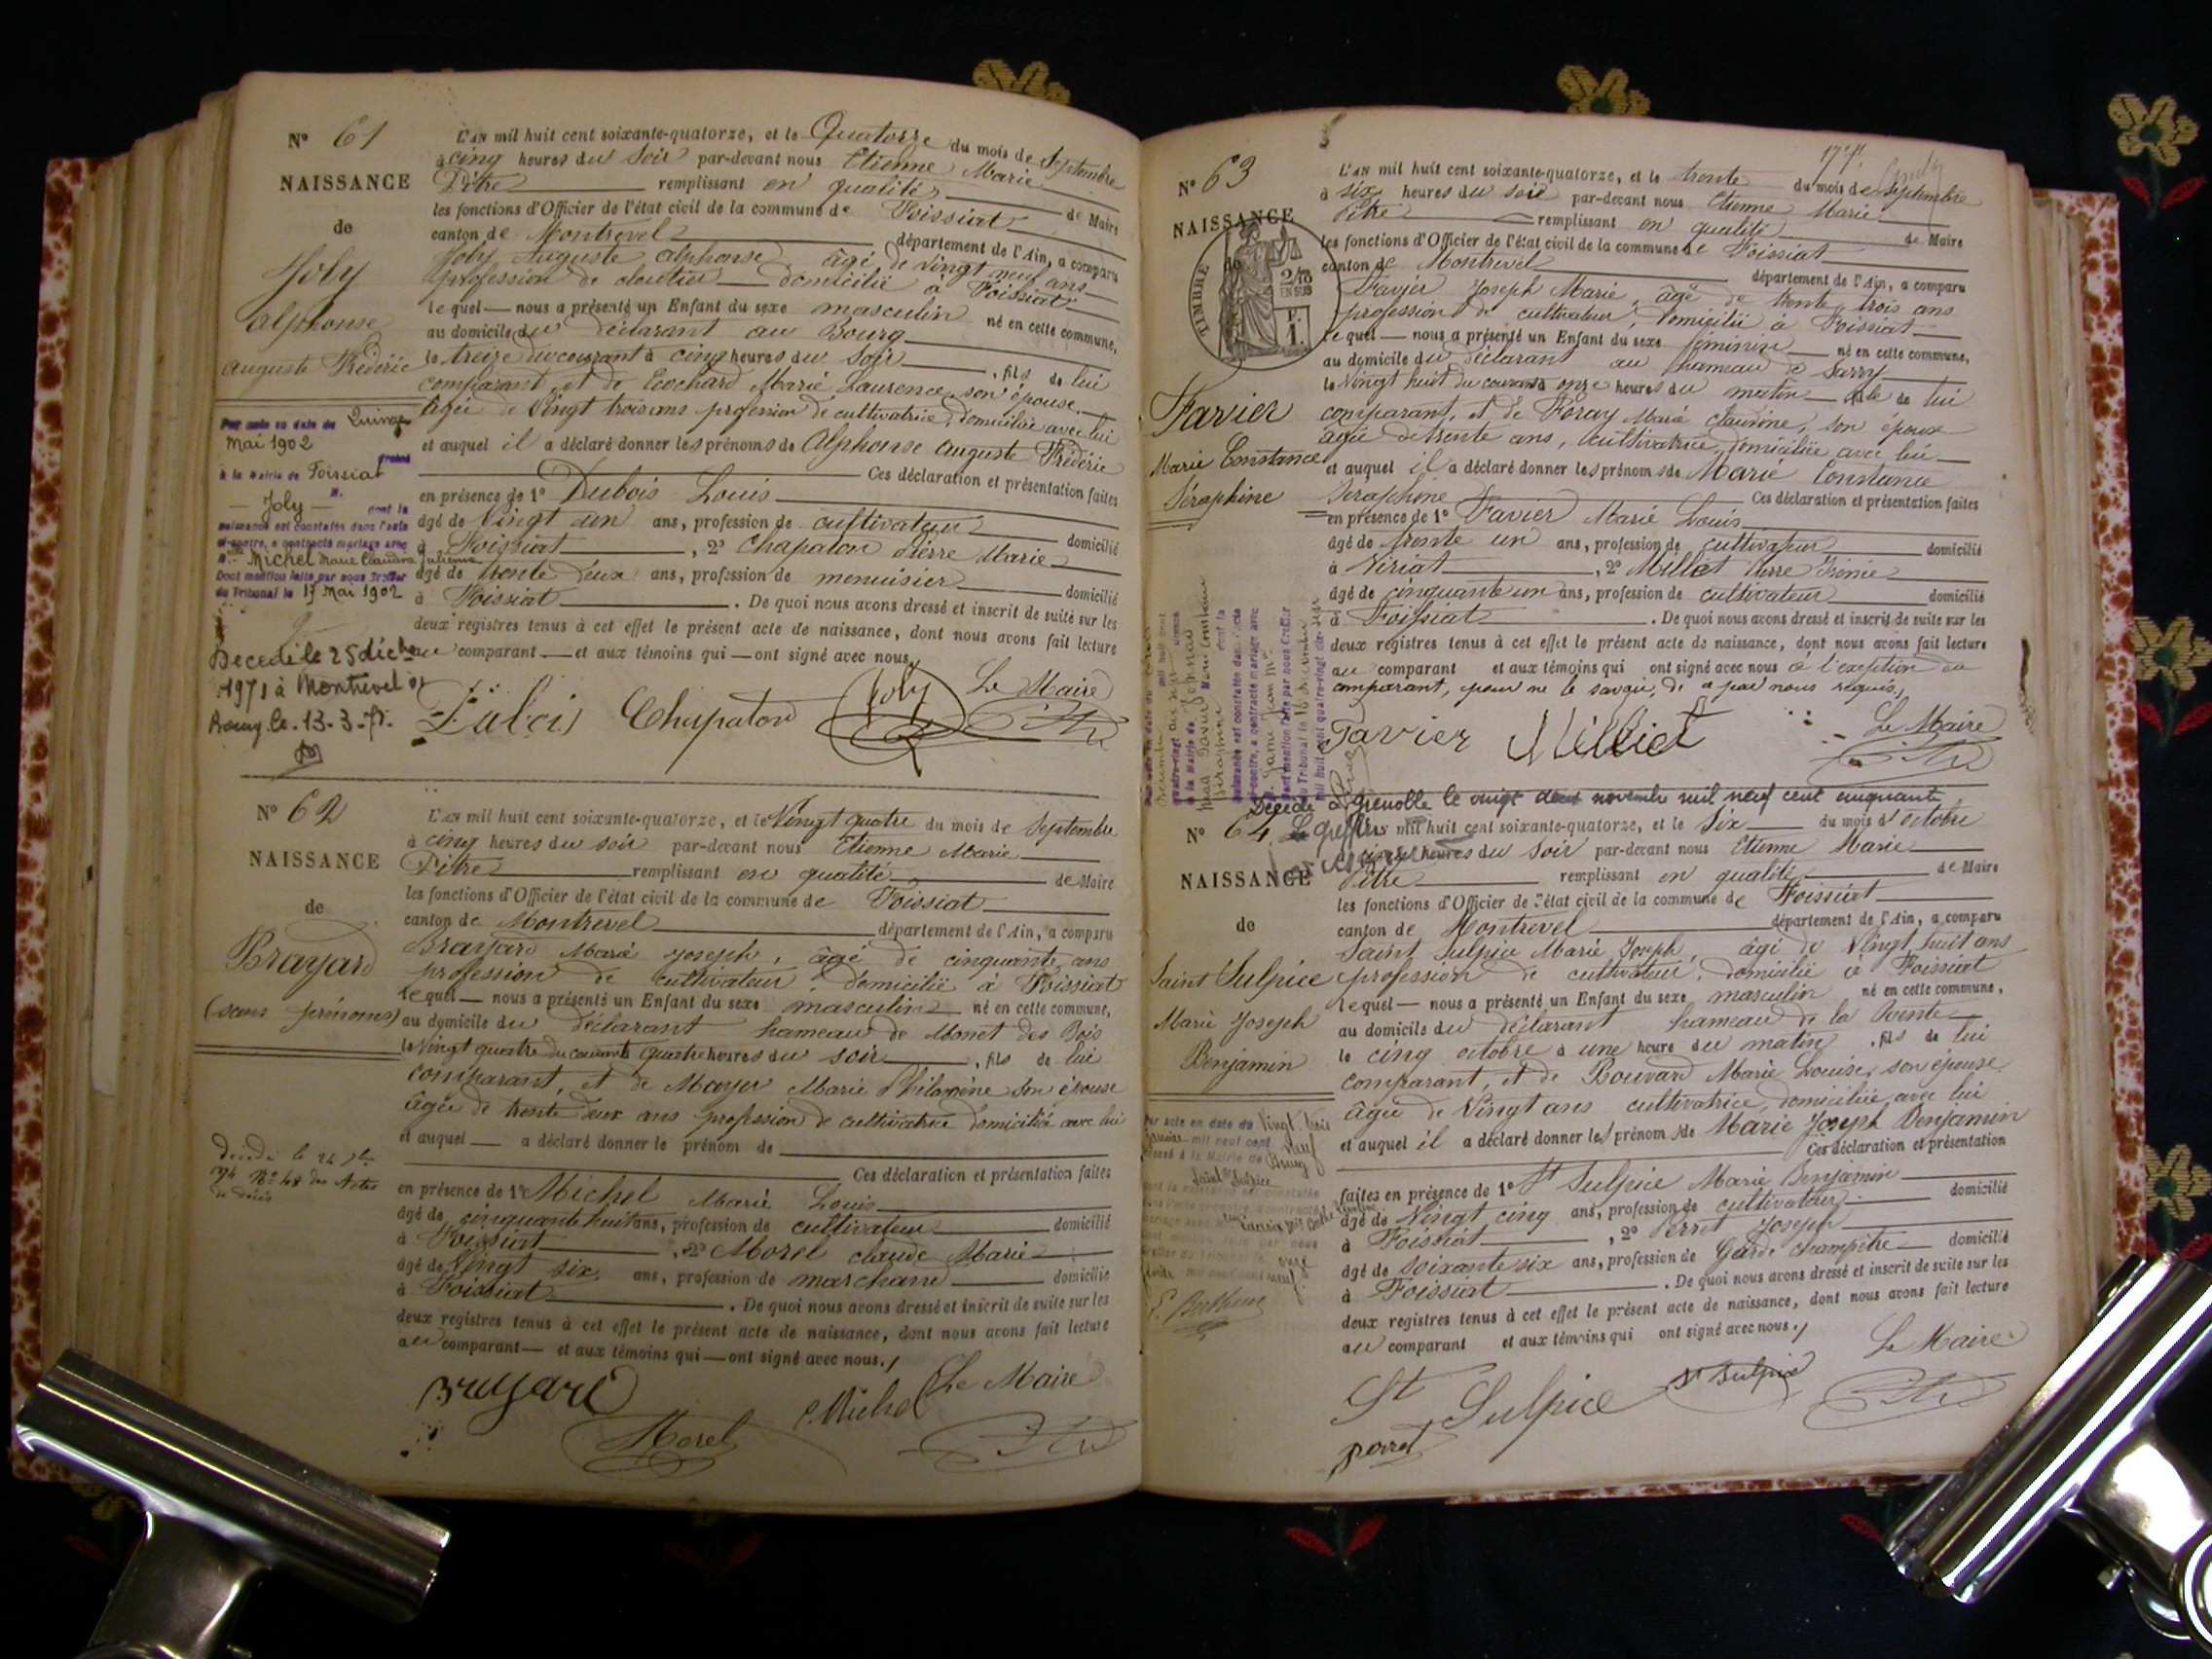 Nº 61
NAISSANCE
de
Joly
Alphonse
Auguste Frédéric
Par acte en date du Quinze
Mai 1902
à la Mairie de Foissiat
M.
— Joly — dont la
naissance est constatée dans l'acte
ci-contre, a contracté mariage avec
Michel Marie Claudine Julienne
Dont mention faite par nous Greffier
du Tribunal le 17 Mai 1902
Décédé le 25 déc
1971 à Montrevel
Bourg le 13-3-
L'AN mil huit cent soixante-quatorze, et le Quatorze du mois de Septembre
à cinq heures du Soir par-devant nous Etienne Marie
Pitre remplissant en qualité de Maire
les fonctions d'Officier de l'état civil de la commune de Foissiat
canton de Montrevel département de l'Ain, a comparu
Joly Auguste Alphonse, âgé de Vingt neuf ans
profession de cloutier domicilié à Foissiat
lequel — nous a présenté un Enfant du sexe masculin né en cette commune,
au domicile du déclarant au Bourg
le treize du courant à cinq heures du Soir, fils de lui
comparant, et de Cochard Marie Laurence, son épouse
âgée de Vingt trois ans profession de cultivatrice, domiciliée avec lui
et auquel il a déclaré donner les prénoms de Alphonse Auguste Frédéric
Ces déclaration et présentation faites
en présence de 1º Dubois Louis
âgé de Vingt un ans, profession de cultivateur domicilié
à Foissiat, 2º Chapaton Pierre Marie
âgé de trente deux ans, profession de menuisier domicilié
à Foissiat. De quoi nous avons dressé et inscrit de suite sur les
deux registres tenus à cet effet le présent acte de naissance, dont nous avons fait lecture
au comparant — et aux témoins qui — ont signé avec nous,
Le Maire
Dubois Chapaton Joly
Nº 62
NAISSANCE
de
Brayard
(sans prénoms)
Décédé le 24
74 Nº 48 des Actes
de décès
L'AN mil huit cent soixante-quatorze, et le Vingt quatre du mois de Septembre
à cinq heures du soir par-devant nous Etienne Marie
Pitre remplissant en qualité de Maire
les fonctions d'Officier de l'état civil de la commune de Foissiat
canton de Montrevel département de l'Ain, a comparu
Brayard Marie Joseph, âgé de cinquante ans
profession de cultivateur, domicilié à Foissiat
lequel — nous a présenté un Enfant du sexe masculin né en cette commune,
au domicile du déclarant hameau de Monet des Bois
le Vingt quatre du courant à quatre heures du soir, fils de lui
comparant, et de Mayer Marie Philomène son épouse
âgée de trente deux ans profession de cultivatrice domiciliée avec lui
et auquel — a déclaré donner le prénom de
Ces déclaration et présentation faites
en présence de 1º Michel Marie Louis
âgé de cinquante huit ans, profession de cultivateur domicilié
à Foissiat, 2º Morel Claude Marie
âgé de Vingt six ans, profession de marchand domicilié
à Foissiat. De quoi nous avons dressé et inscrit de suite sur les
deux registres tenus à cet effet le présent acte de naissance, dont nous avons fait lecture
au comparant — et aux témoins qui — ont signé avec nous.
Brayard Michel Le Maire
Morel
Nº 63
NAISSANCE
de
TIMBRE
Favier
Marie Constance
Séraphine
L'AN mil huit cent soixante-quatorze, et le trente du mois de Septembre
à six heures du soir par-devant nous Etienne Marie
Pitre remplissant en qualité de Maire
les fonctions d'Officier de l'état civil de la commune de Foissiat
canton de Montrevel département de l'Ain, a comparu
Favier Joseph Marie, âgé de trente trois ans
profession de cultivateur, domicilié à Foissiat
lequel — nous a présenté un Enfant du sexe féminin né en cette commune,
au domicile du déclarant au hameau de Sarry
le Vingt huit du courant à onze heures du matin fille de lui
comparant, et de Foray Marie Claudine, son épouse
âgée de trente ans, cultivatrice, domiciliée avec lui
et auquel il a déclaré donner les prénoms de Marie Constance
Séraphine Ces déclaration et présentation faites
en présence de 1º Favier Marie Louis
âgé de trente un ans, profession de cultivateur domicilié
à Viriat, 2º Millet Pierre
âgé de cinquante un ans, profession de cultivateur domicilié
à Foissiat. De quoi nous avons dressé et inscrit de suite sur les
deux registres tenus à cet effet le présent acte de naissance, dont nous avons fait lecture
au comparant et aux témoins qui ont signé avec nous à l'exeption du
comparant, pour ne le savoir, de ce par nous requis,
Favier Milliet Le Maire
Décédé à Grenoble le vingt deux novembre mil neuf cent cinquante
Nº 64
NAISSANCE
de
Saint Sulpice
Marie Joseph
Benjamin
Par acte en date du Vingt trois
Janvier mil neuf cent neuf
L'AN mil huit cent soixante-quatorze, et le Six du mois d'octobre
à cinq heures du Soir par-devant nous Etienne Marie
Pitre remplissant en qualité de Maire
les fonctions d'Officier de l'état civil de la commune de Foissiat
canton de Montrevel département de l'Ain, a comparu
Saint Sulpice Marie Joseph, âgé de Vingt huit ans
profession de cultivateur, domicilié à Foissiat
lequel — nous a présenté un Enfant du sexe masculin né en cette commune,
au domicile du déclarant hameau de la Pointe
le cinq octobre à une heure du matin, fils de lui
comparant, et de Bouvard Marie Louise, son épouse
âgée de Vingt ans cultivatrice, domiciliée avec lui
et auquel il a déclaré donner les prénoms de Marie Joseph Benjamin
Ces déclaration et présentation
faites en présence de 1º St Sulpice Marie Benjamin
âgé de Vingt cinq ans, profession de cultivateur domicilié
à Foissiat, 2º Perret Joseph
âgé de soixante six ans, profession de Garde champêtre domicilié
à Foissiat. De quoi nous avons dressé et inscrit de suite sur les
deux registres tenus à cet effet le présent acte de naissance, dont nous avons fait lecture
au comparant et aux témoins qui ont signé avec nous.
Le Maire
St Sulpice St Sulpice